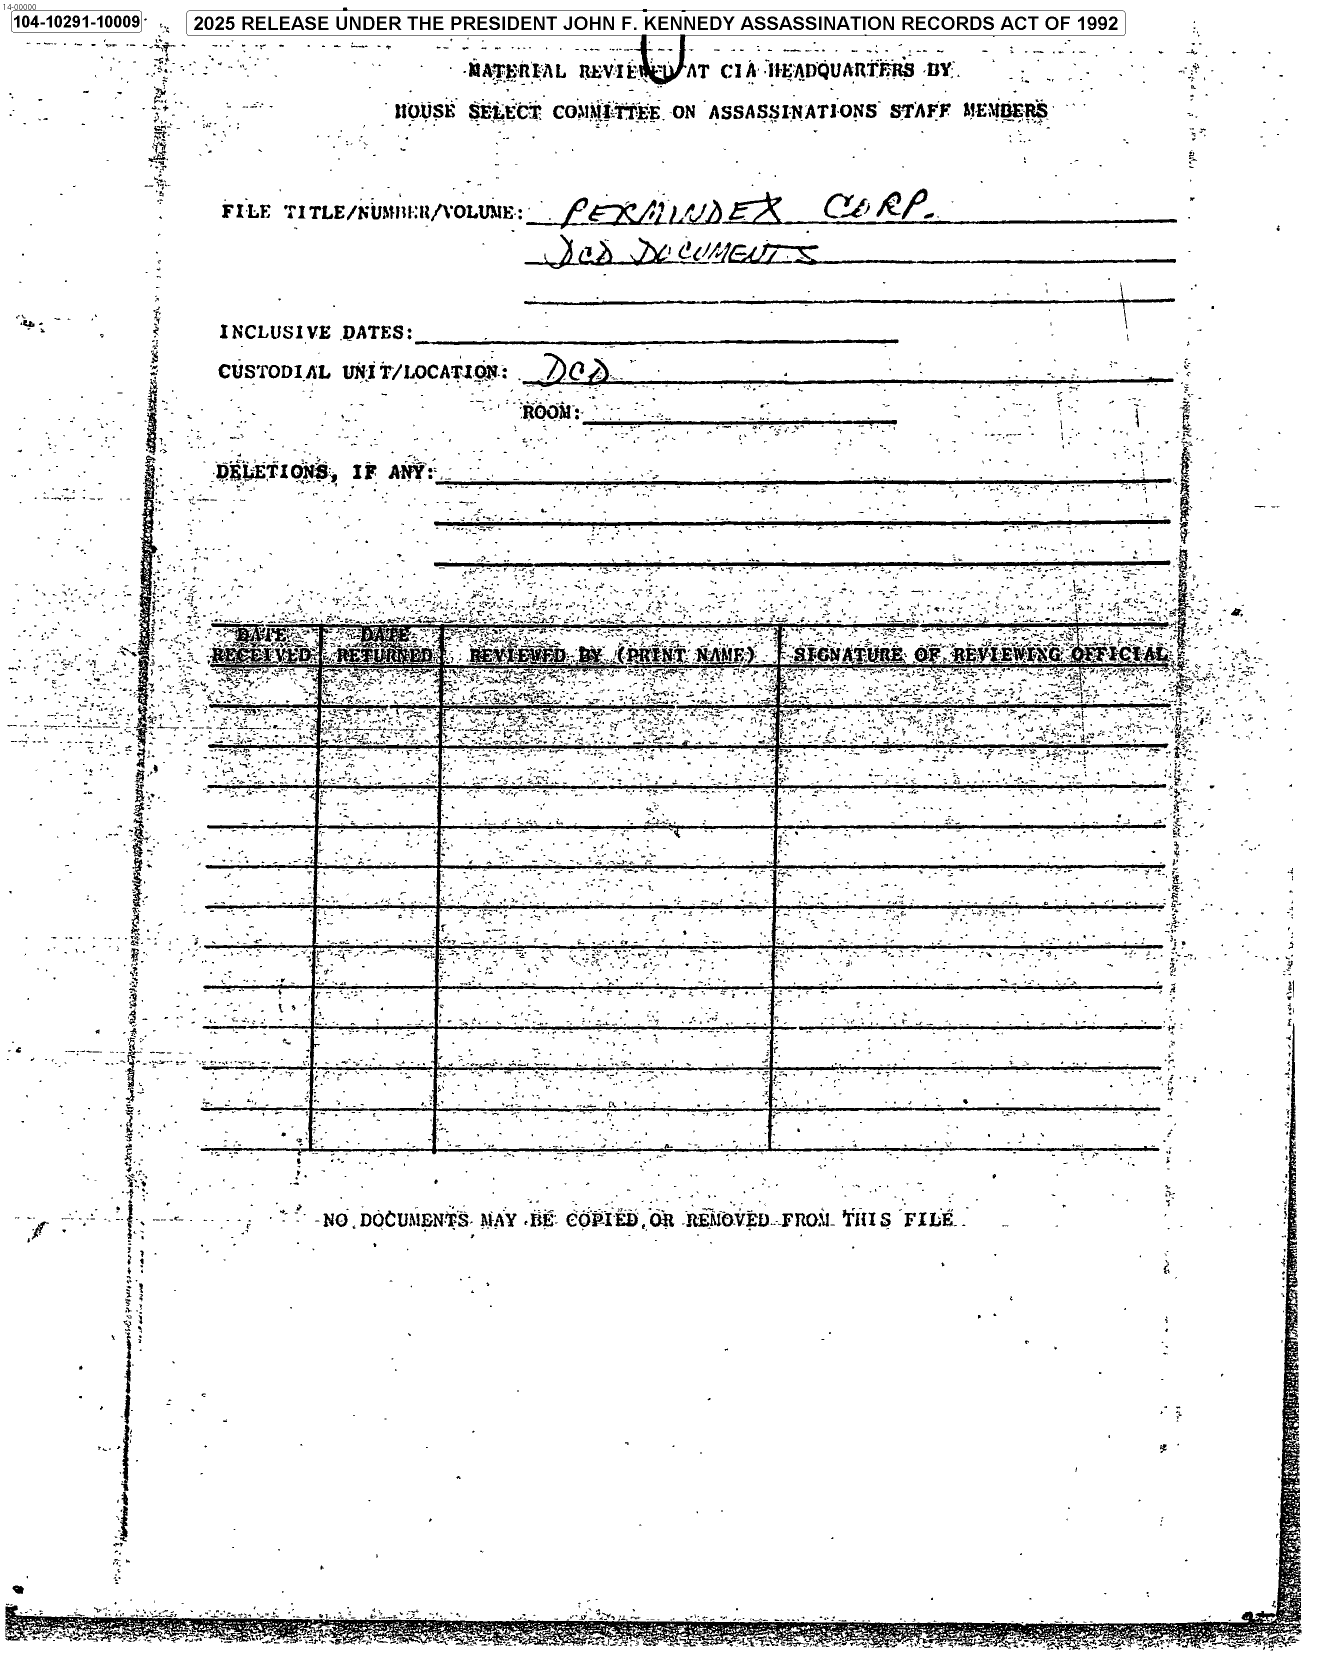 14-00000
104-10291-10009
2025 RELEASE UNDER THE PRESIDENT JOHN F. KENNEDY ASSASSINATION RECORDS ACT OF 1992
MATERIAL REVIEWED AT CIA HEADQUARTERS BY
HOUSE SELECT COMMITTEE ON ASSASSINATIONS STAFF MEMBERS
FILE TITLE/NUMBER/VOLUME: PERMINDEX CORP.
DCD DOCUMENTS
INCLUSIVE DATES:
CUSTODIAL UNIT/LOCATION: DCD
ROOM:
DELETIONS, IF ANY:
DATE RECEIVED DATE RETURNED REVIEWED BY (PRINT NAME) SIGNATURE OF REVIEWING OFFICIAL
NO DOCUMENTS MAY BE COPIED OR REMOVED FROM THIS FILE